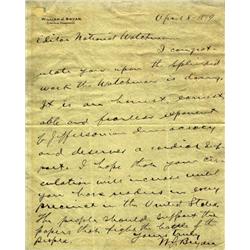 WILLIAM J. BRYAN
April 8
Editor National Watchman
I congrat-
ulate you upon the splendid
work the Watchman is doing.
It is an honest, correct
able and fearless exponent
of Jeffersonian democracy
and deserves a cordial sup-
port. I hope that your cir-
culation will increase until
you have readers in every
precinct in the United States.
The people should support the
papers that fight the battle of the
people.
Yours truly
W J Bryan